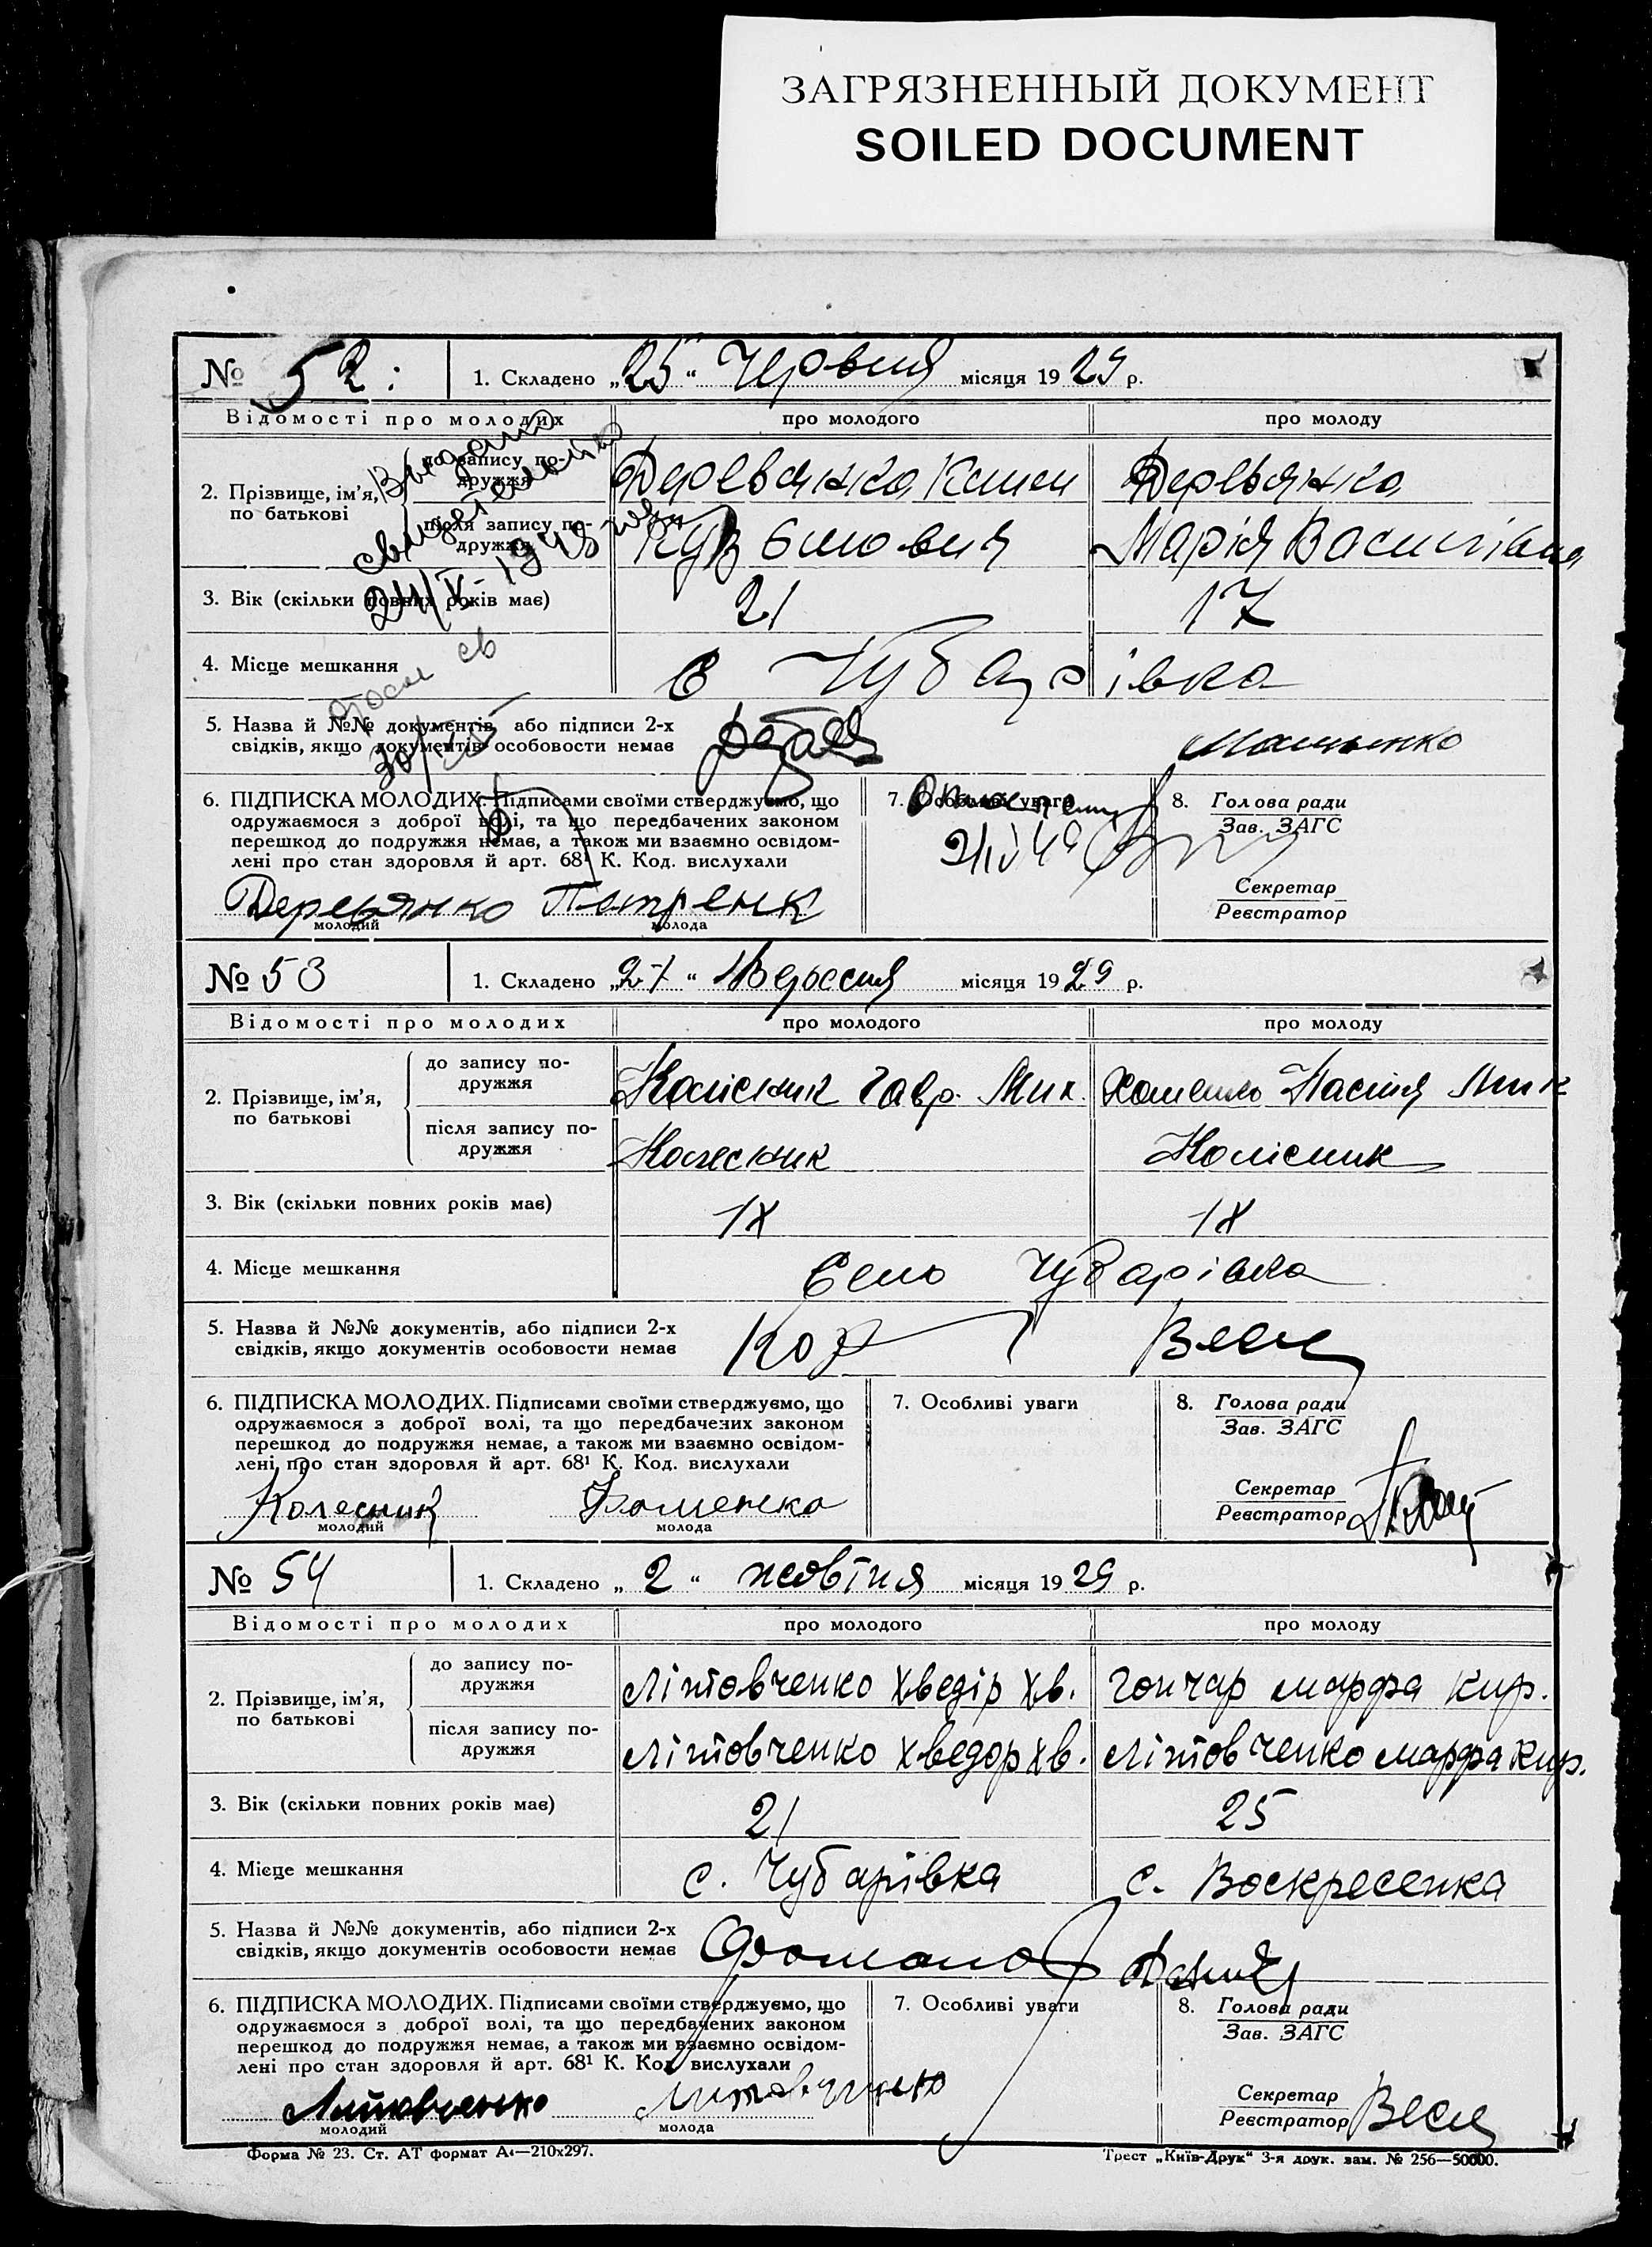 ЗАГРЯЗНЕННЫЙ ДОКУМЕНТ
SOILED DOCUMENT
№ 52: 1. Складено „25“ Червня місяця 1929 р.
Відомості про молодих про молодого про молоду
2. Прізвище, ім’я, по батькові
до запису подружжя Деревянка Деревянка
після запису подружжя Марія Василівна
Видано
свидетельство
24/V-1948
3. Вік (скільки повних років має) 21 17
4. Місце мешкання с Чубарівка
5. Назва й №№ документів, або підписи 2-х
свідків, якщо документів особовости немає
30/
6. ПІДПИСКА МОЛОДИХ. Підписами своїми стверджуємо, що
одружаємося з доброї волі, та що передбачених законом
перешкод до подружжя немає, а також ми взаємно освідом-
лені про стан здоровля й арт. 68¹ К. Код. вислухали
Деревянко Петренк
молодий молода
7. Особливі уваги
8. Голова ради
Зав. ЗАГС
Секретар
Реєстратор
№ 53 1. Складено „27“ Вересня місяця 1929 р.
Відомості про молодих про молодого про молоду
2. Прізвище, ім’я, по батькові
до запису подружжя Колісник Гавр. Мих. Хоменко Настя Мик
після запису подружжя Колесник Колісник
3. Вік (скільки повних років має) 18 18
4. Місце мешкання Село Чубарівка
5. Назва й №№ документів, або підписи 2-х
свідків, якщо документів особовости немає
6. ПІДПИСКА МОЛОДИХ. Підписами своїми стверджуємо, що
одружаємося з доброї волі, та що передбачених законом
перешкод до подружжя немає, а також ми взаємно освідом-
лені про стан здоровля й арт. 68¹ К. Код. вислухали
Колесник Хоменко
молодий молода
7. Особливі уваги
8. Голова ради
Зав. ЗАГС
Секретар
Реєстратор
№ 54 1. Складено „2“ жовтня місяця 1929 р.
Відомості про молодих про молодого про молоду
2. Прізвище, ім’я, по батькові
до запису подружжя Літовченко Хведір Хв. Гончар Марфа Кир.
після запису подружжя Літовченко Хведор Хв. Літовченко Марфа Кир.
3. Вік (скільки повних років має) 21 25
4. Місце мешкання с. Чубарівка с. Воскресенка
5. Назва й №№ документів, або підписи 2-х
свідків, якщо документів особовости немає
6. ПІДПИСКА МОЛОДИХ. Підписами своїми стверджуємо, що
одружаємося з доброї волі, та що передбачених законом
перешкод до подружжя немає, а також ми взаємно освідом-
лені про стан здоровля й арт. 68¹ К. Код. вислухали
Литовченко Литовченко
молодий молода
7. Особливі уваги
8. Голова ради
Зав. ЗАГС
Секретар
Реєстратор
Форма № 23. Ст. АТ формат А4—210х297. Трест „Київ-Друк“ 3-я друк. зам. № 256—50000.